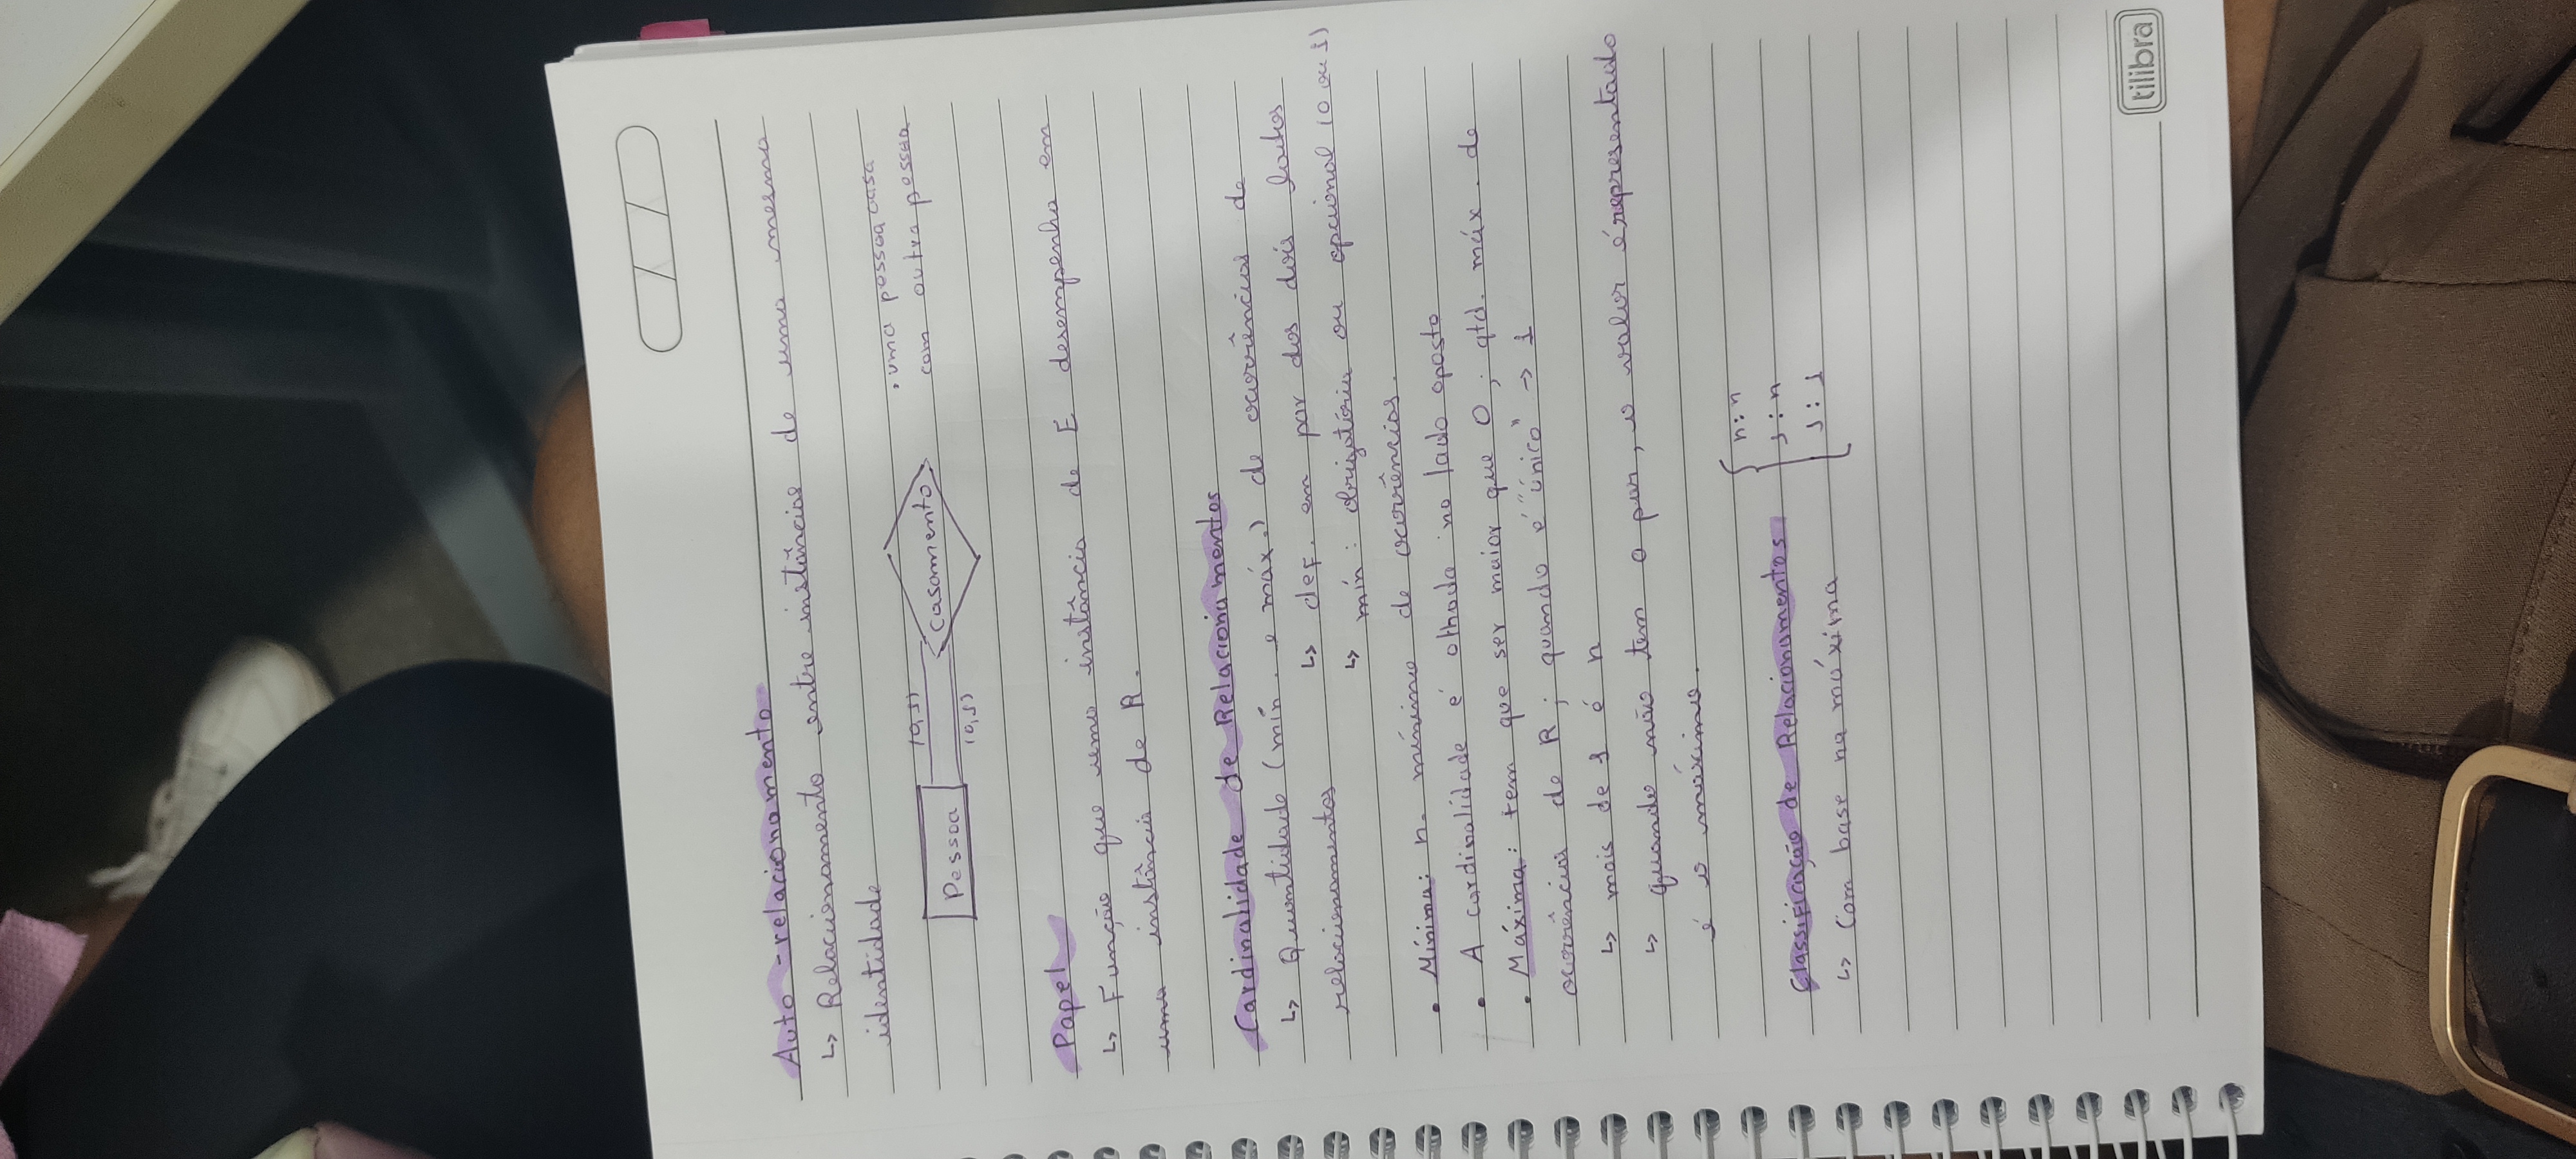 Auto-relacionamento
↳ Relacionamento entre instâncias de uma mesma
identidade
Pessoa (0,1) (0,1) casamento
• uma pessoa casa
com outra pessoa
Papel
↳ Função que uma instância de E desempenha em
uma instância de R.
Cardinalidade de Relacionamentos
↳ Quantidade (mín. e máx.) de ocorrências de
relacionamentos
↳ def. em par dos dois lados
↳ mín: obrigatória ou opcional (0 ou 1)
• Mínima: n. mínimo de ocorrências.
• A cardinalidade é olhada no lado oposto
• Máxima: tem que ser maior que 0; qtd. máx. de
ocorrências de R; quando é "único" → 1
↳ mais de 1 é n
↳ quando não tem o par, o valor é representado
é o máximo.
Classificação de Relacionamentos
↳ Com base na máxima
n:n
1:n
1:1
tilibra